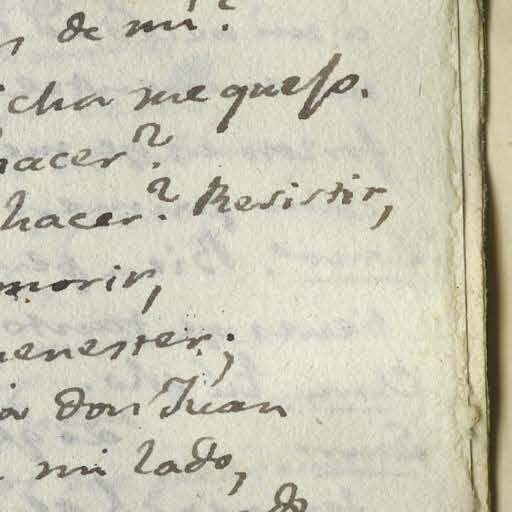 de mi?
cha me quexo.
hacer?
hacer? Resistir,
morir,
menester;
don Juan
mi lado,